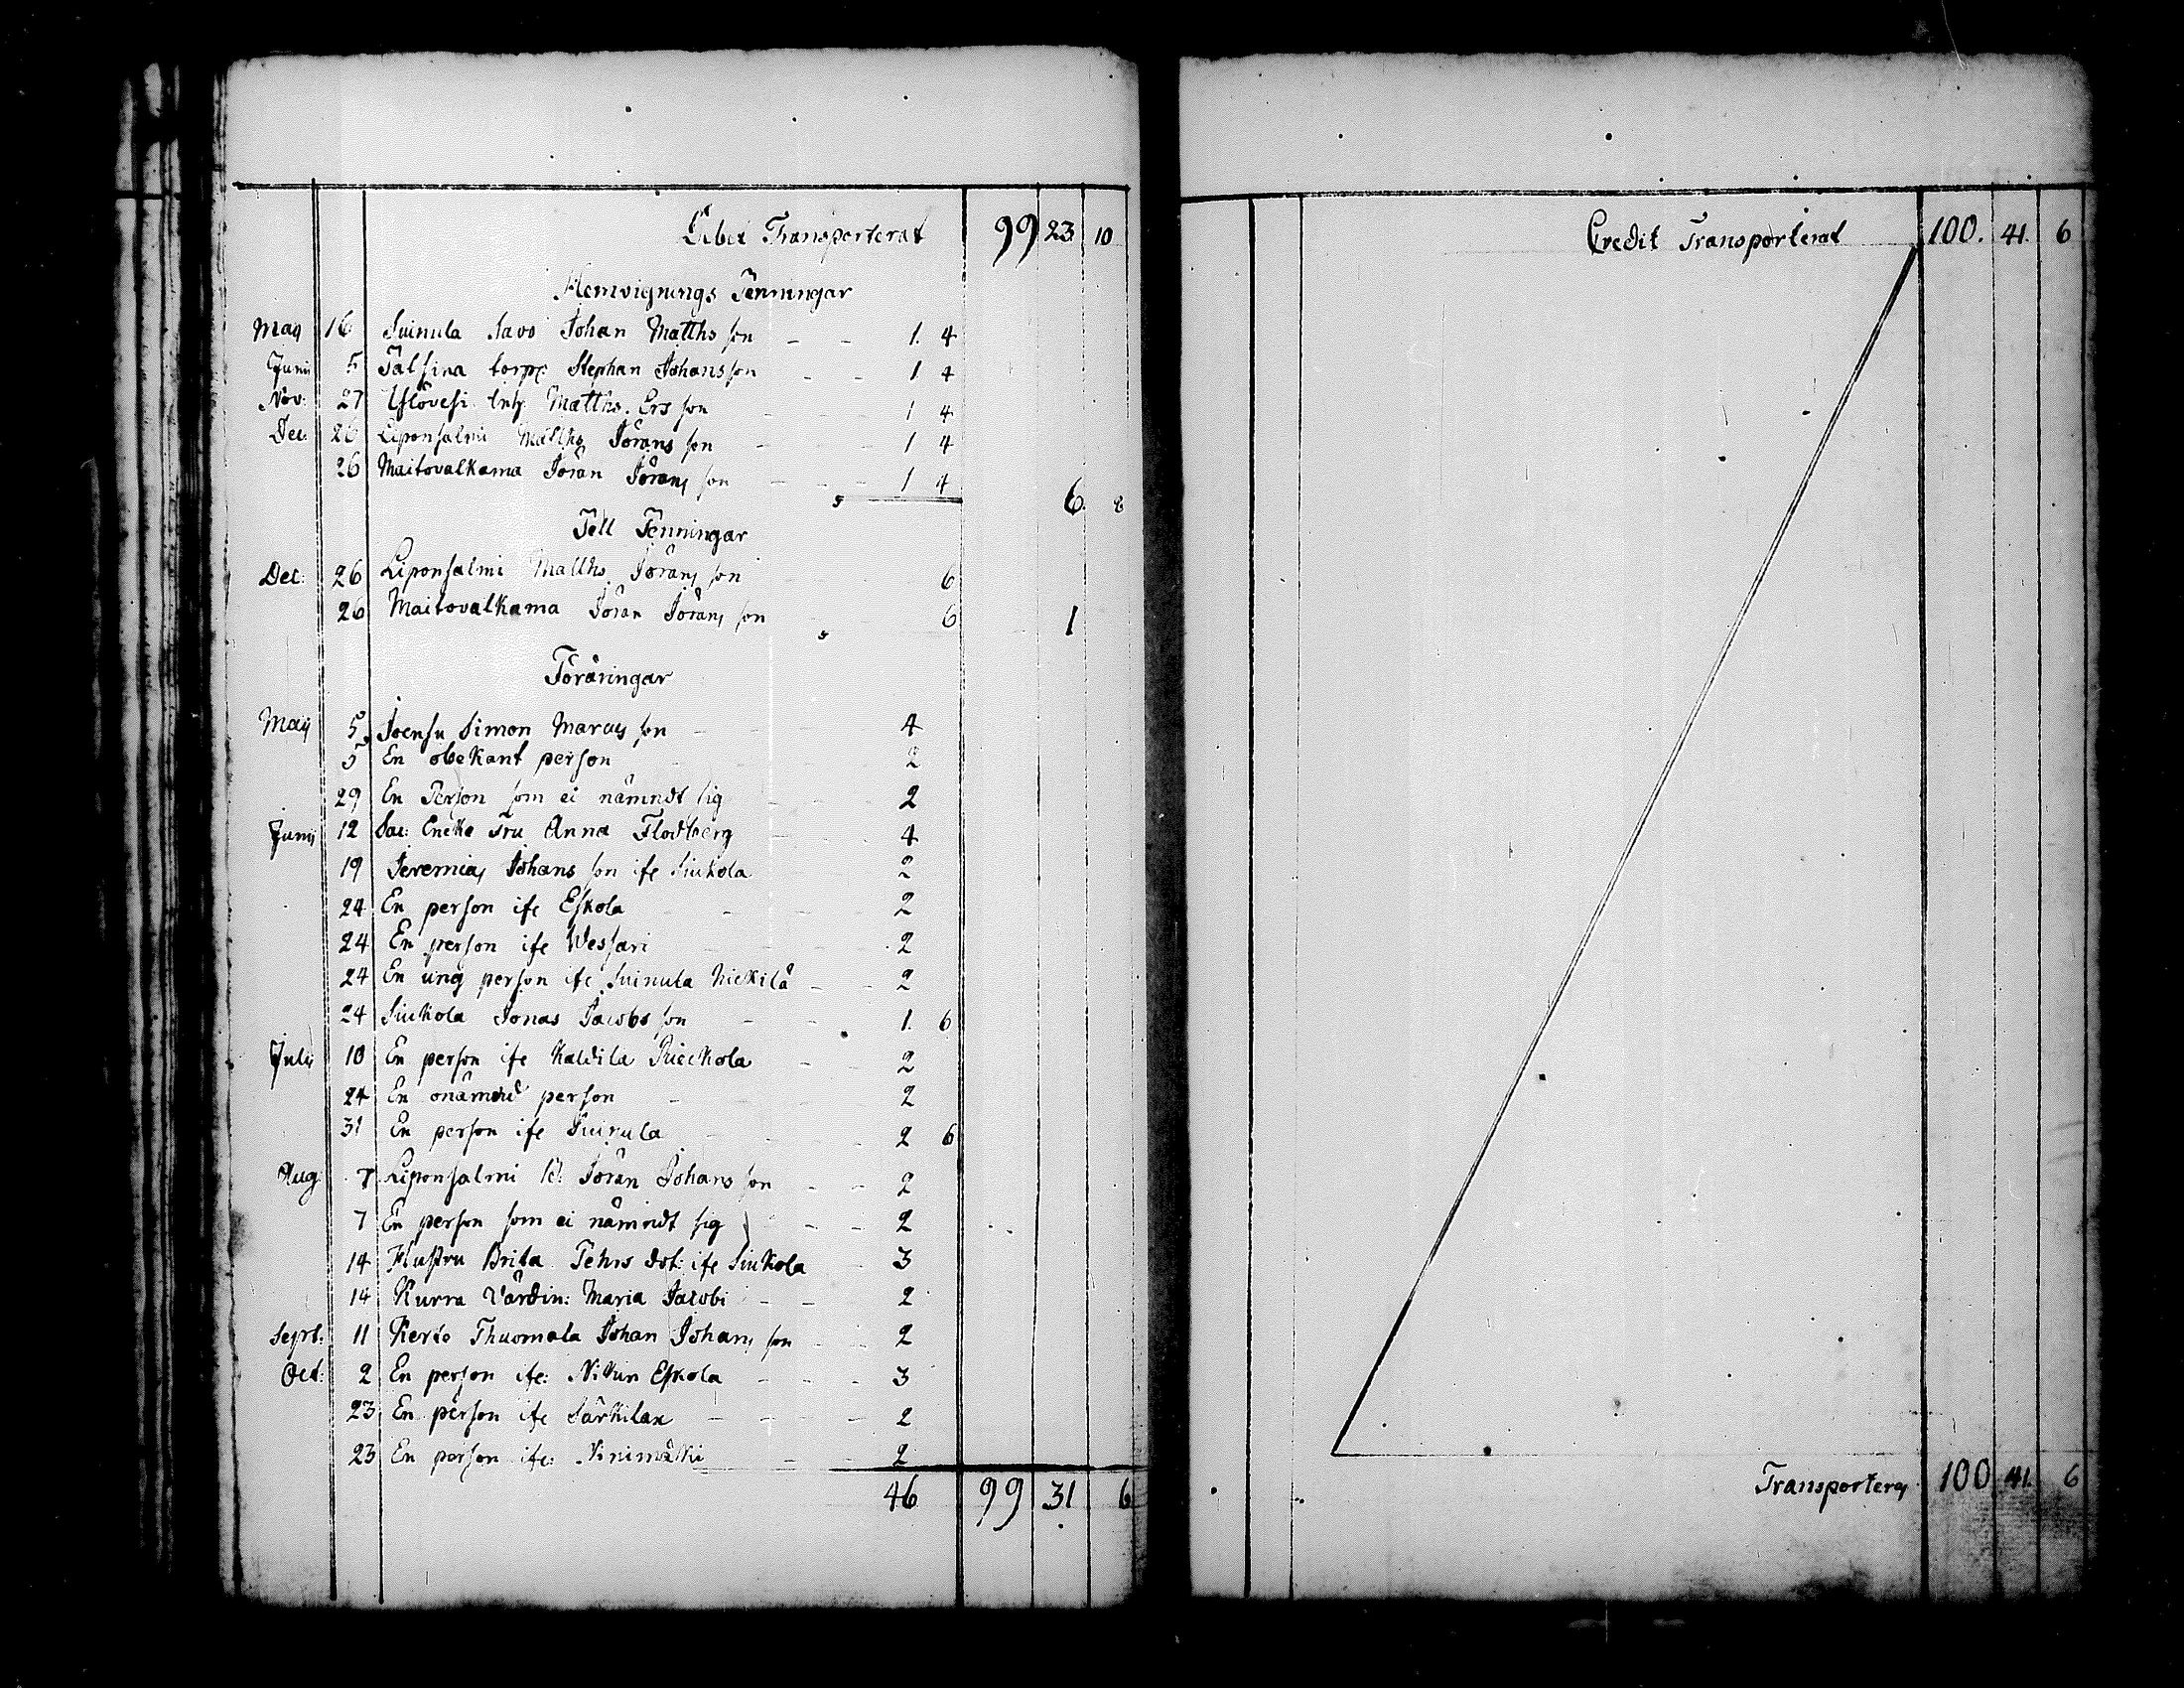 Debet Transporterat 99 23 10
Hemvignings Penningar
Maij 16 Suinula Savo Johan Matths son 1. 4
Junii 5 Talsina torp: Stephan Johans son 1 4
Nov: 27 Matths. Ers son 1 4
Dec: 26 Liponsalmi Matths Jörans son 1 4
26 Maitovalkama Jöran Jörans son 1 4
6. 8
Tell Penningar
Dec: 26 Liponsalmi Matths Jörans son 6
26 Maitovalkama Jöran Jörans son 6 1
Föräringar
Maij 5 Joensu Simon Marcus son 4
5 En obekant person 2
29 En Person som ei nämndt sig 2
Junij 12 Sac: Encka Fru Anna Flodberg 4
19 Jeremias Johans son ifr Siukola 2
24 En person ifr Eskola 2
24 En person ifr Wessari 2
24 En ung person ifr Suinula Nickilä 2
24 Siukola Jonas Jacobs son 1. 6
Julii 10 En person ifr Kaldila 2
24 En onämnd person 2
31 En person ifr Suinula 2 6
Aug: 7 Liponsalmi B: Jöran Johans son 2
7 En person som ei nämndt sig 2
14 Hustru Brita Pehrs dot: ifr Siukola 3
14 Kurra Värdin: Maria Jacobi 2
Sept: 11 Kerto Thuomala Johan Johans son 2
Oct: 2 En person ifr: Eskola 3
23 En person ifr Särkilax 2
23 En person ifr: Ninimäkki 2
46 99 31 6
Credit Transporterat 100. 41. 6
Transporteras 100 41. 6